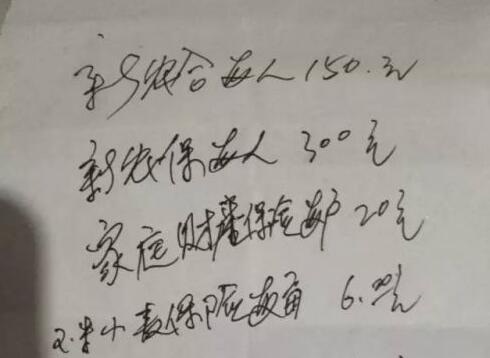 新农合每人150.元
新农保每人300元
家庭财产保险每户20元
玉米小麦保险每亩 6.00元